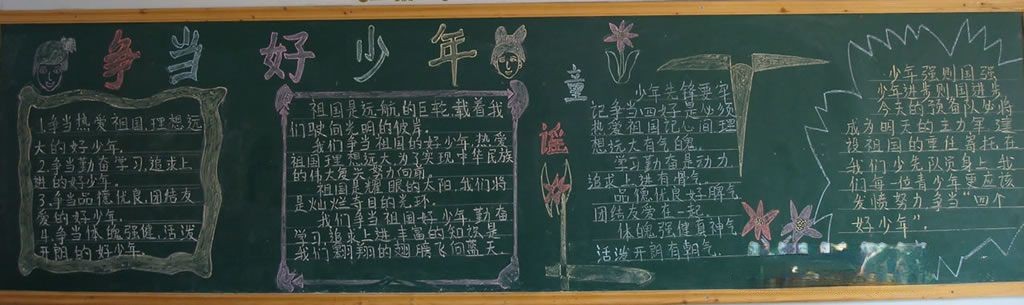 争当好少年
1.争当热爱祖国,理想远
大的好少年。
2.争当勤奋学习,追求上
进的好少年。
3.争当品德优良,团结友
爱的好少年。
4.争当体魄强健,活泼
开朗的好少年。
祖国是远航的巨轮,载着我
们驶向光明的彼岸。
我们争当祖国的好少年,热爱
祖国理想远大,为了实现中华民族
的伟大复兴努力向前。
祖国是耀眼的太阳,我们将
是灿烂夺目的光环。
我们争当祖国好少年,勤奋
学习,追求上进,丰富的知识是
我们翱翔的翅膀飞向蓝天。
童谣
少年先锋要牢
记争当四好是必须
热爱祖国记心间理
想远大有气魄。
学习勤奋是动力
追求上进有
品德优良好脾气
团结友爱在一起。
体魄强健真神气
活泼开朗有朝气。
少年强则国强
少年进步则国进步
今天的预备队必将
成为明天的主力军,建
设祖国的重任寄托在
我们少先队员身上,我
们每一位青少年要应该
发愤努力,争当“四个
好少年”。